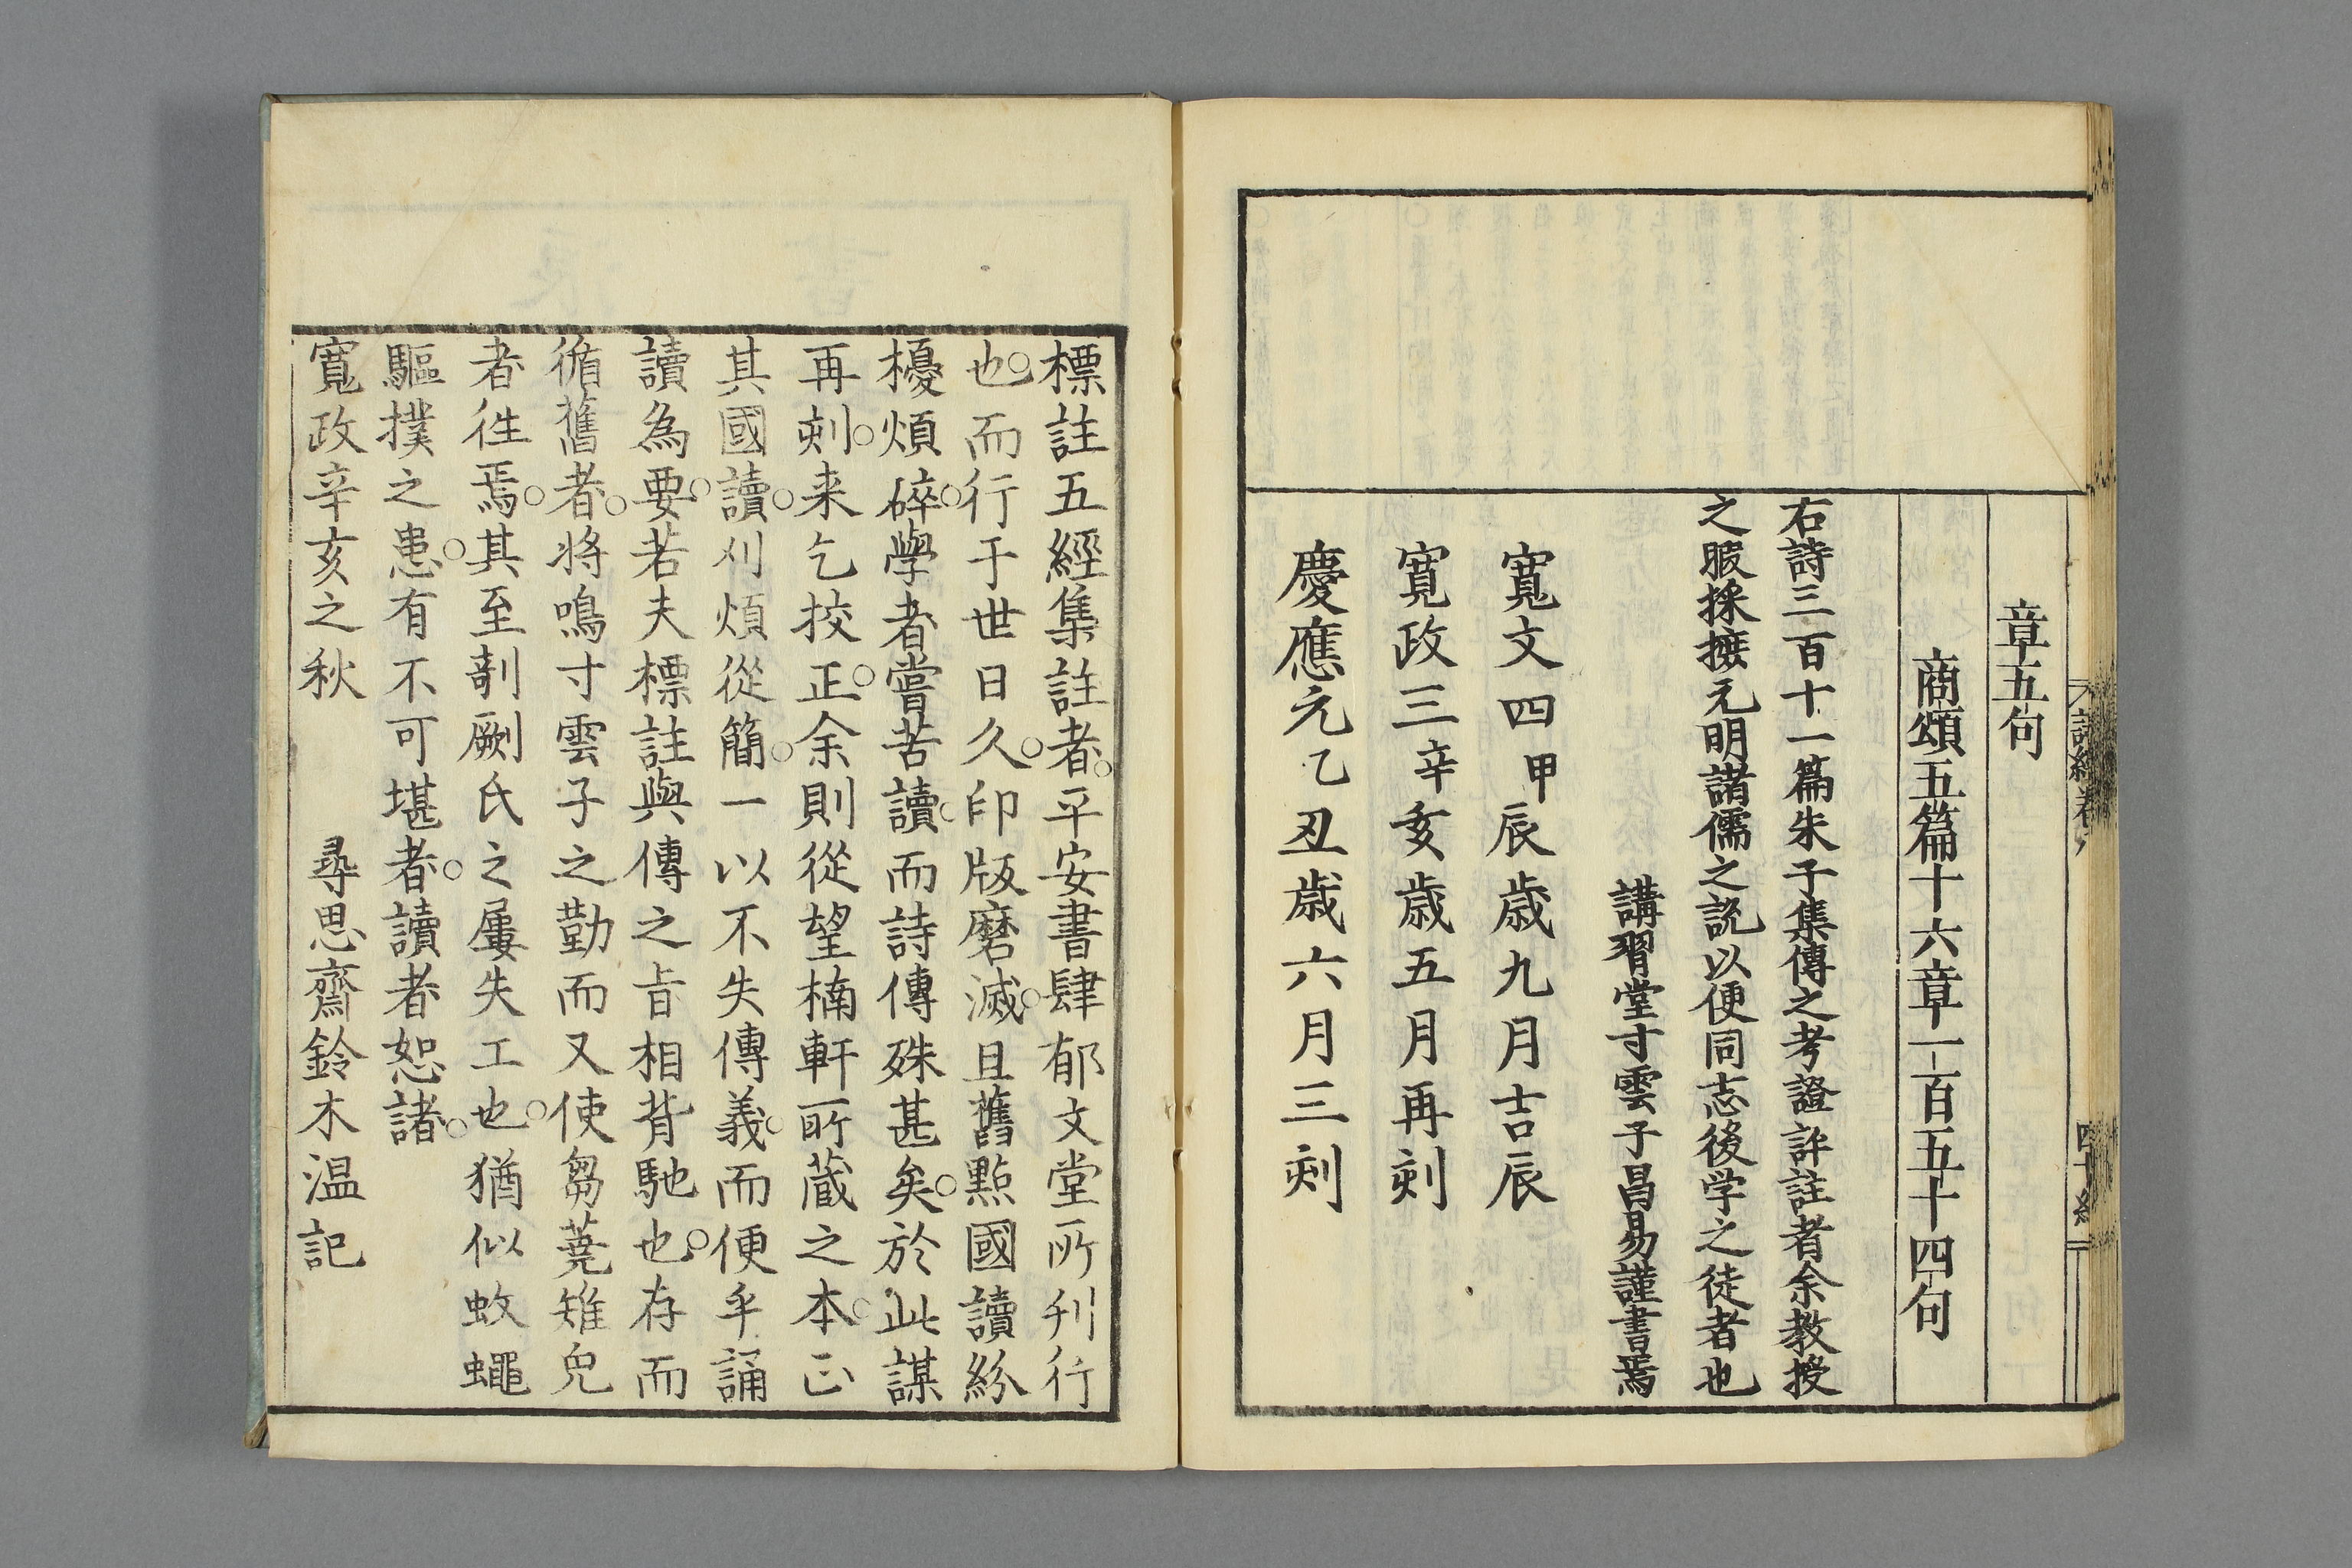 章五句
商頌五篇十六章一百五十四句
右詩三百十一篇朱子集傳之考證評註者余教授
之暇採摭元明諸儒之説以便同志後学之徒者也
講習堂寸雲子昌易謹書焉
寛文四甲辰歳九月吉辰
寛政三辛亥歳五月再刻
慶應元乙丑歳六月三刻
標註五經集註者○平安書肆郁文堂所刊行
也○而行于世日久○印版磨滅○且舊點國讀紛
擾煩碎○學者嘗苦讀○而詩傳殊甚矣○於此謀
再刻○来乞挍正○余則從望楠軒所藏之本○正
其國讀○刈煩從簡○一以不失傳義○而便乎誦
讀為要○若夫標註與傳之旨相背馳也○存而
循舊者○将鳴寸雲子之勤而又使芻蕘雉兔
者徃焉○其至剞劂氏之屢失工也○猶似蚊蠅
驅撲之患○有不可堪者○讀者恕諸○
寛政辛亥之秋　尋思齋鈴木温記